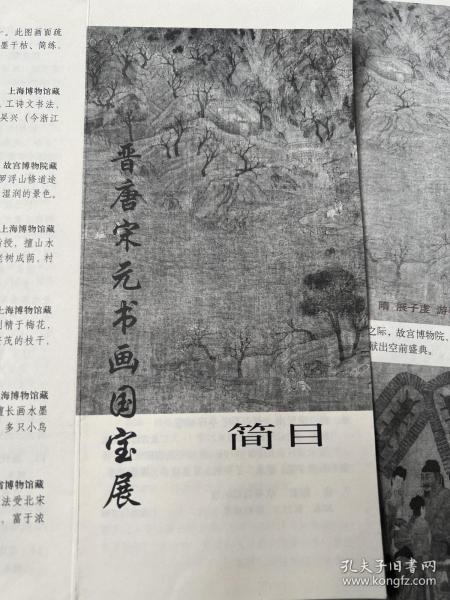 。此图画面疏
墨于枯、简练,
上海博物馆藏
工诗文书法,
吴兴(今浙江
故宫博物院藏
罗浮山修道途
湿润的景色。
上海博物馆藏
授,擅山水
老树成荫,村
上海博物馆藏
精于梅花,
茂的枝干,
海博物馆藏
擅长画水墨
多只小鸟
省博物馆藏
法受北宋
,富于浓
晋唐宋元书画国宝展
简目
隋 展子虔 游
之际,故宫博物院、
献出空前盛典。
孔夫子旧书网
www.kongfz.com